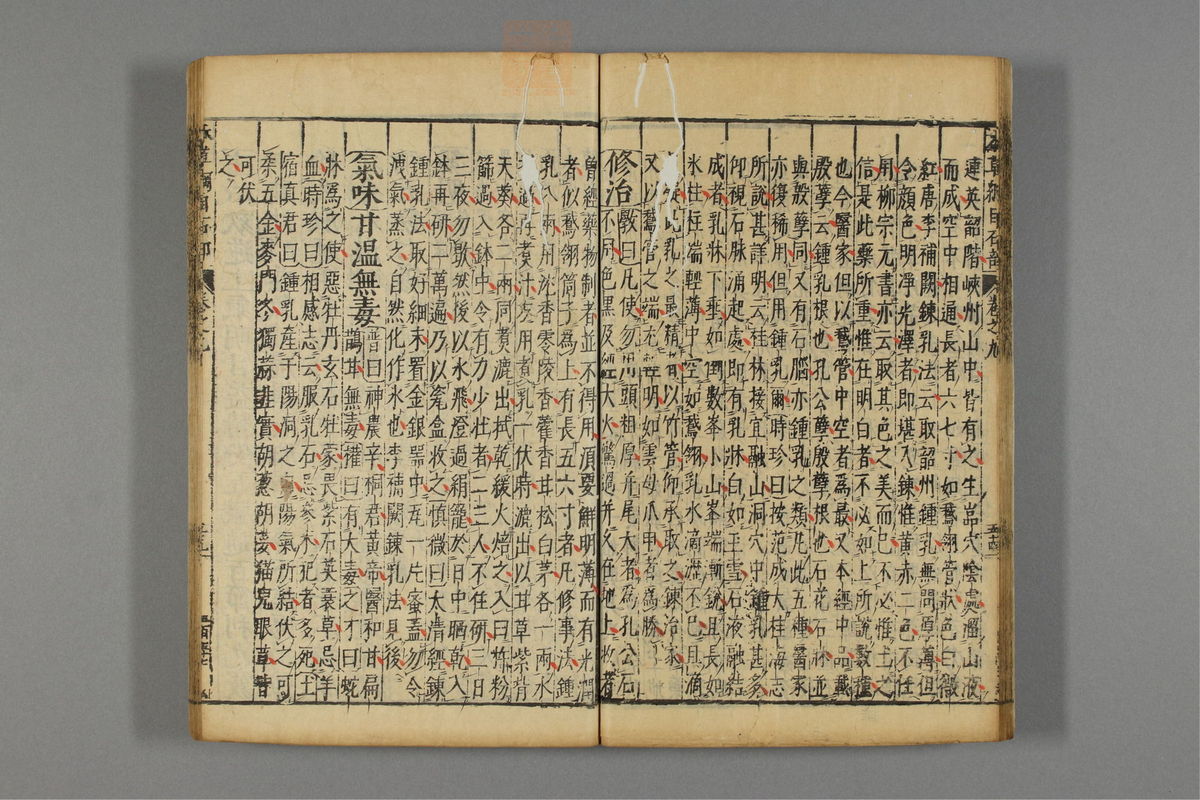 連英韶階峽州山中皆有之生嵓穴陰處溜山液
而成空中相通長者六七寸如鵝翎管狀色白微
紅唐李補闕鍊乳法云取韶州鍾乳無問厚薄但
令顔色明淨光澤者即堪入鍊惟黃赤二色不任
用柳宗元書亦云取其色之美而已不必惟土之
信是此藥所重惟在明白者不必如上所說數種
也今醫家但以鵝管中空者爲最又本經中品載
殷孽云鍾乳根也孔公孽殷孽根也石花石牀並
與殷孽同又有石腦亦鍾乳之類凡此五種醫家
亦復稀用但用鍾乳爾時珍曰按范成大桂海志
所說甚詳明云桂林接宜融山洞穴中鍾乳甚多
仰視石脉涌起處即有乳牀白如玉雪石液融結
成者乳牀下垂如倒數峯小山峯端漸銳且長如
氷柱柱端輕薄中空如鵝翎乳水滴瀝不已且滴
此乳之最精者以竹管仰承取之鍊治家
又以鵝管之端尤輕明如雲母爪甲者爲勝
修治斅曰凡使勿用頭粗厚并尾大者爲孔公石
不用色黑及經大火驚過并久在地上收者
曾經藥物制者並不得用須要鮮明薄而有光潤
者似鵝翎筒子爲上有長五六寸者凡修事法鍾
乳八兩用沈香零陵香藿香甘松白茅各一兩水
煑過煑汁方用煑乳一伏時漉出以甘草紫背
天葵各二兩同煑漉出拭乾緩火焙之入臼杵粉
篩過入鉢中令有力少壯者二三人不住研三日
三夜勿歇然後以水飛澄過絹籠於日中晒乾入
鉢再研二萬遍乃以瓷盒收之慎微曰太清經鍊
鍾乳法取好細末置金銀器中瓦一片密蓋勿令
洩氣蒸之自然化作水也李補闕鍊乳法見後
氣味甘温無毒普曰神農辛桐君黃帝醫和甘扁
鵲甘無毒權曰有大毒之才曰蛇
牀爲之使惡牡丹玄石牡蒙畏紫石英蘘草忌羊
血時珍曰相感志云服乳石忌參朮犯者多死土
宿真君曰鍾乳産于陽洞之陽氣所結伏之可
柔五金麥門冬獨蒜韭實胡葱胡荽猫兒眼草皆
可伏之